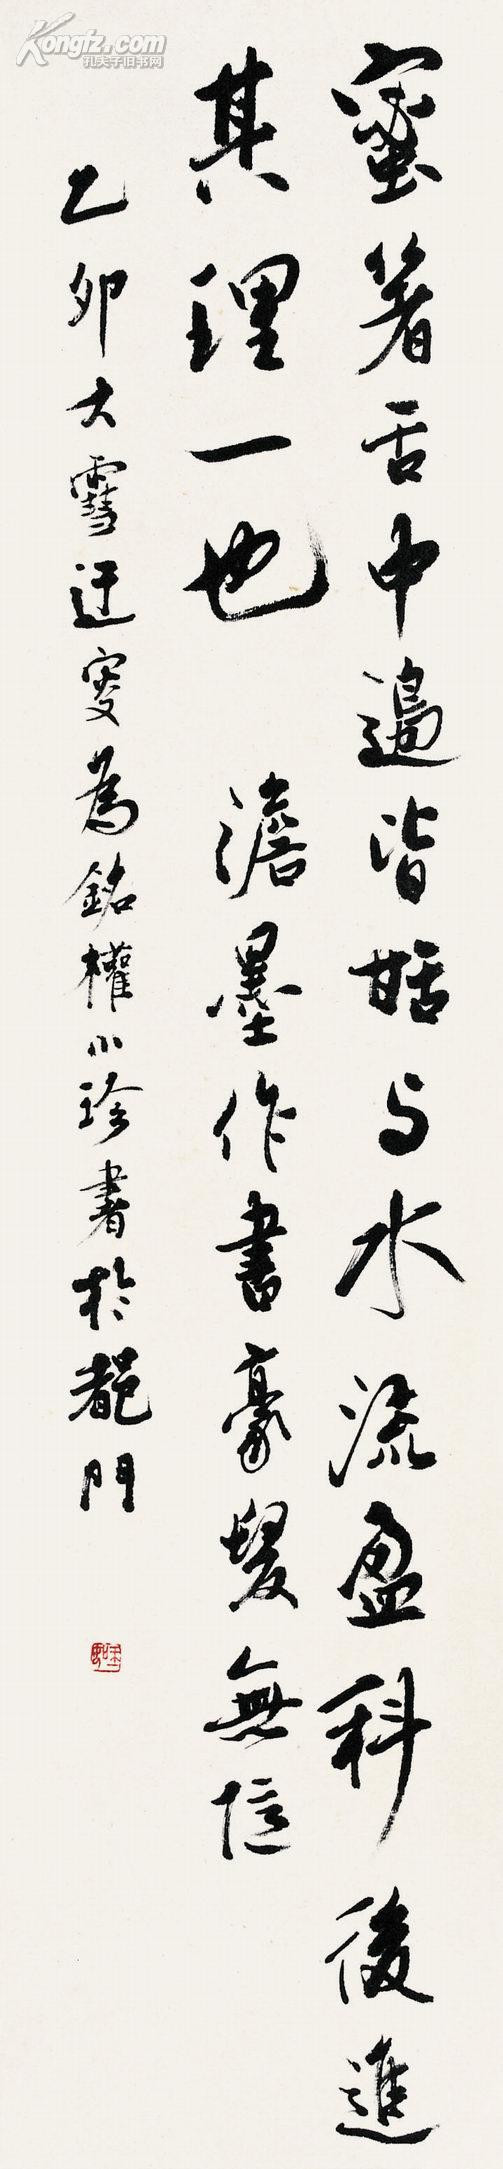 Kongfz.com
孔夫子旧书网
蜜著舌中邊皆甜与水流盈科後進
其理一也 澹墨作書豪髮無隐
乙卯大雪迂叟為銘權小珍書於都門